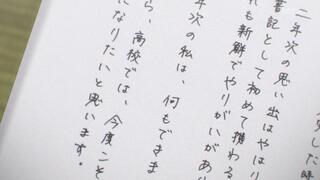 二年次の思い出はやはり
書記として初めて携わる
も新鮮でやりがいがあ
年次の私は、何もできま
ら、高校では、今度こそ
になりたいと思います。